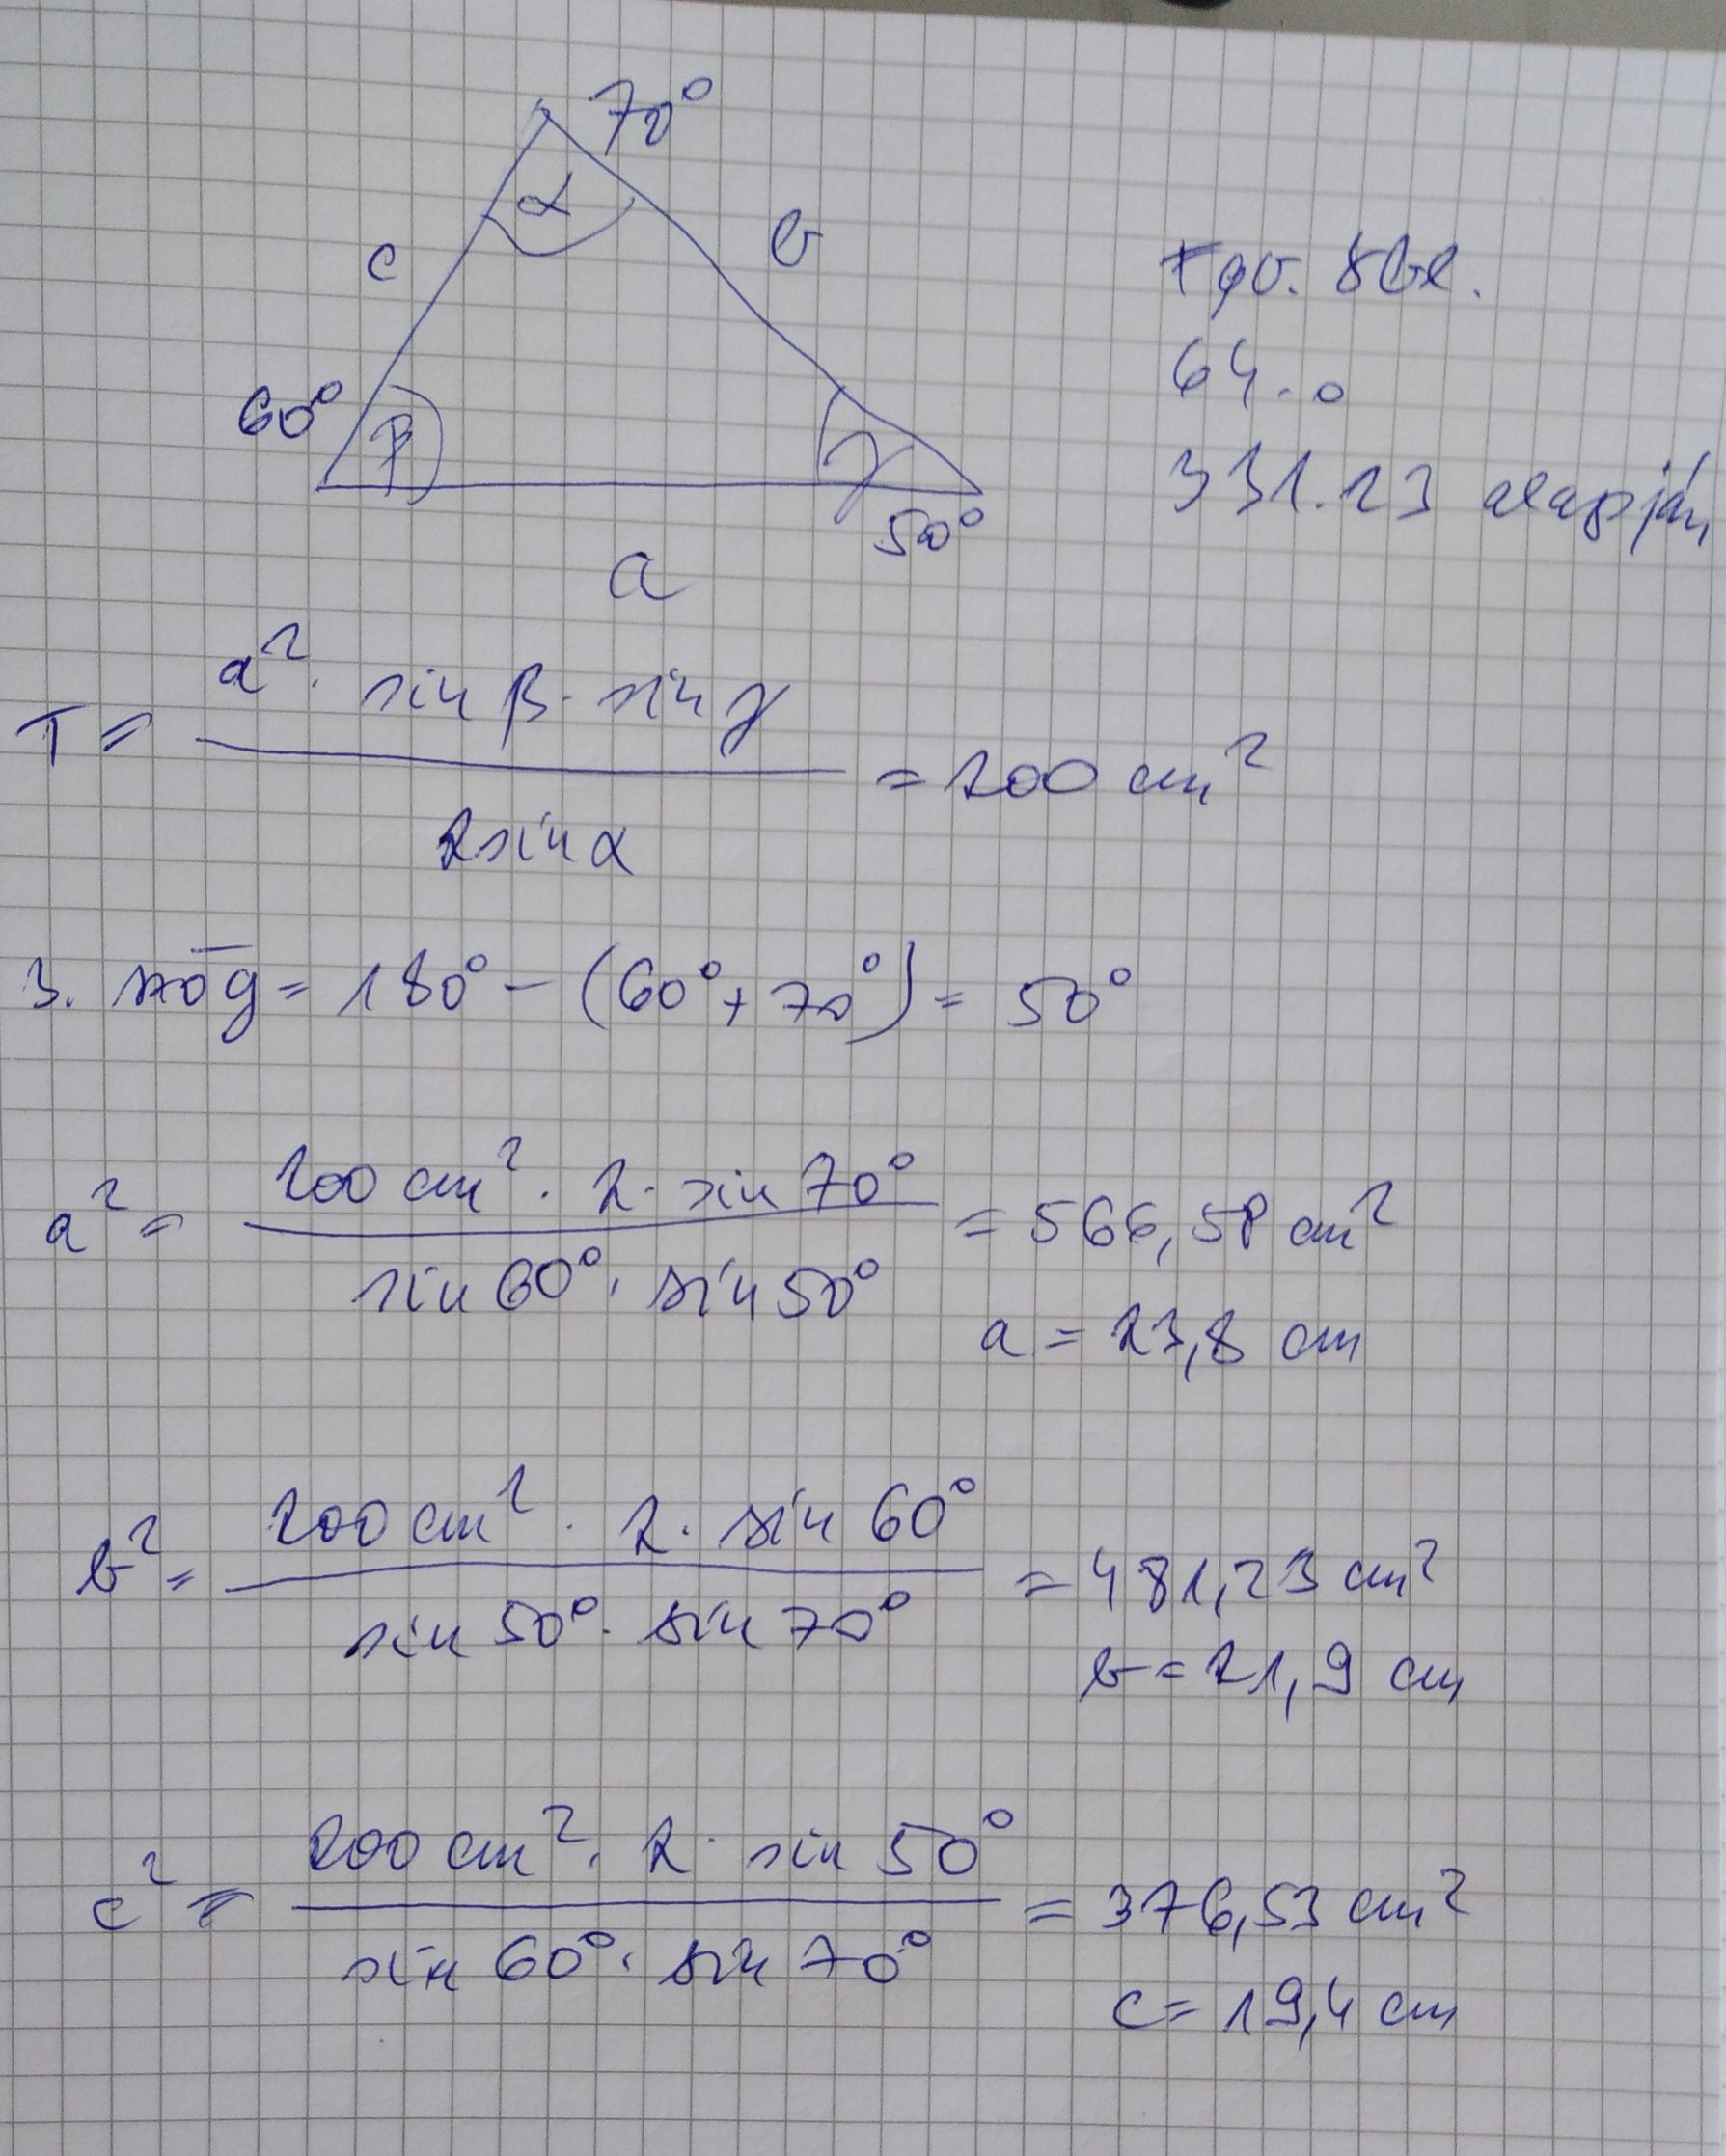 70°
α
c
b
60°
β
γ
50°
a
Fgv. tbl.
64. o
331.23 alapján
T = a². sin β · sin γ / 2 sin α = 200 cm²
3. szög = 180° - (60° + 70°) = 50°
a² = 200 cm² · 2 · sin 70° / sin 60° · sin 50° = 566,58 cm²
a = 23,8 cm
b² = 200 cm² · 2 · sin 60° / sin 50° · sin 70° = 481,23 cm²
b = 21,9 cm
c² = 200 cm² · 2 · sin 50° / sin 60° · sin 70° = 376,53 cm²
c = 19,4 cm